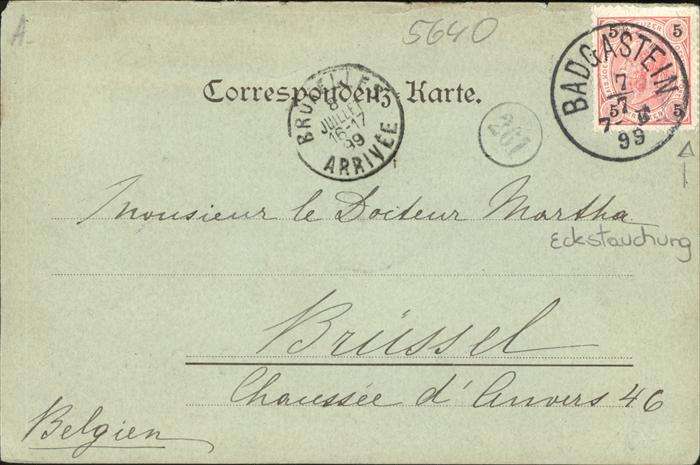 A.
5640
5 5
5 5
BADGASTEIN
7
7
99
Correspondenz-Karte.
BRUXELLES
8
JUILLET
16-17
99
ARRIVÉE
201
Monsieur le Docteur Martha
Eckstauchung
Brüssel
Chaussée d'Anvers 46
Belgien